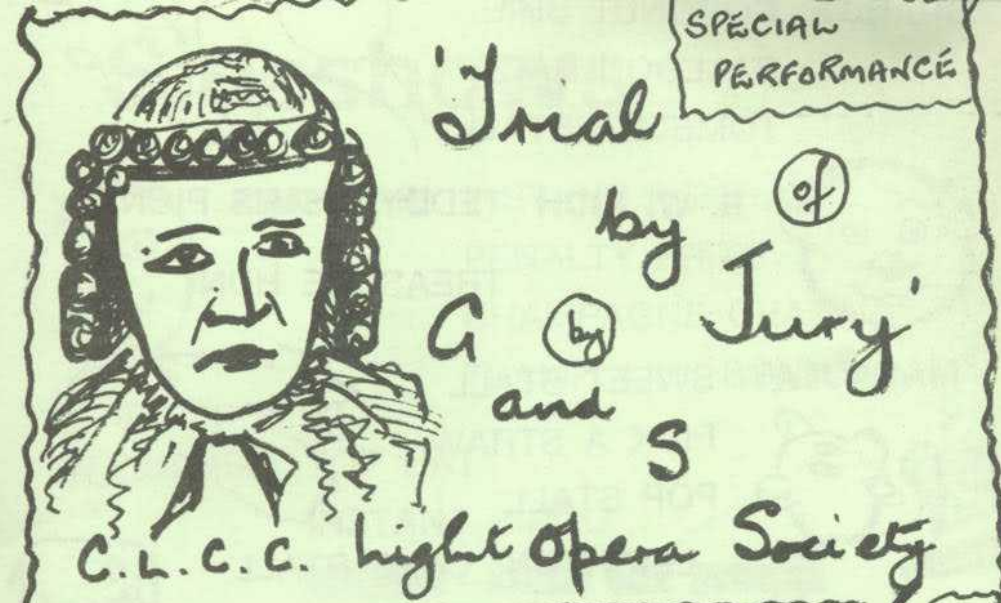 SPECIAL
PERFORMANCE
'Trial
by (of)
G (by) Jury'
and
S
C.L.C.C. Light Opera Society